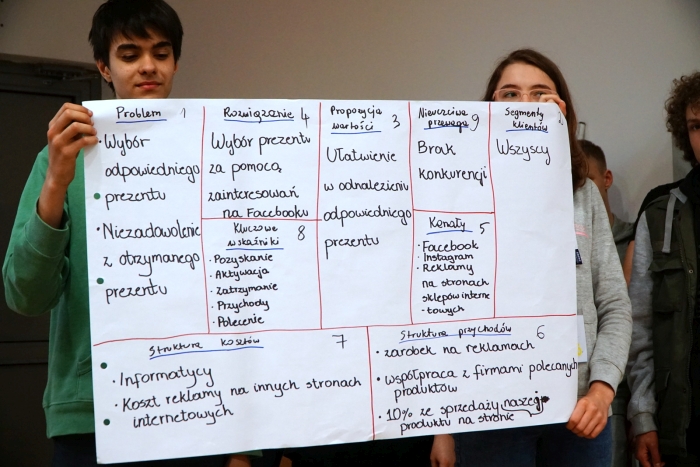 Problem 1
• Wybór
odpowiedniego
prezentu
• Niezadowolenie
z otrzymanego
prezentu
Rozwiązanie 4
Wybór prezentu
za pomocą
zainteresowań
na Facebooku
Kluczowe 8
wskaźniki
• Pozyskanie
• Aktywacja
• Zatrzymanie
• Przychody
• Polecenie
Propozycja
wartości 3
Ułatwienie
w odnalezieniu
odpowiedniego
prezentu
Nieuczciwa
przewaga 9
Brak
konkurencji
Kanały 5
• Facebook
• Instagram
• Reklamy
na stronach
sklepów interne
-towych
Segmenty
klientów
Wszyscy
Struktura kosztów 7
• Informatycy
• Koszt reklamy na innych stronach
internetowych
Struktura przychodów 6
• zarobek na reklamach
• współpraca z firmami polecanych
produktów
• 10% ze sprzedaży naszego
produktu na stronie